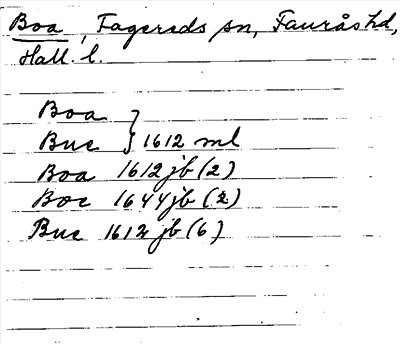 Boa, Fagereds sn, Fauråshd,
Hall. l.
Boa
Buc } 1612 ml
Boa 1612 jb (2)
Boc 1644 jb (2)
Buc 1612 jb (6)